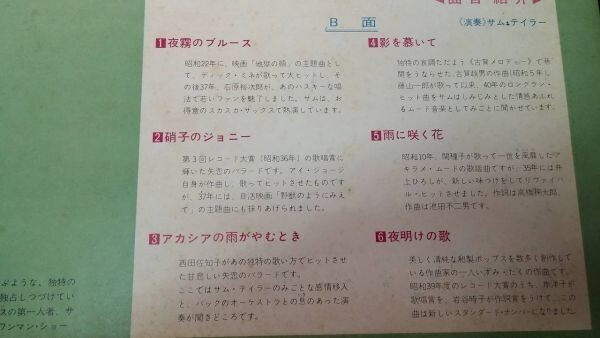 曲目紹介
B 面
〈演奏〉サム・テイラー
1 夜霧のブルース
昭和22年に、映画「地獄の顔」の主題曲とし
て、ディック・ミネが歌って大ヒットし、そ
の後37年、石原裕次郎が、あのハスキーな唱
法で若いファンを魅了しました。サムは、お
得意のスカスカ・サックスで熱演しています。
2 硝子のジョニー
第3回レコード大賞(昭和36年)の歌唱賞に
輝いた失恋のバラードです。アイ・ジョージ
自身が作曲し、歌ってヒットさせたものです
が、37年には、日活映画「野獣のようにみえ
て」の主題にも採りあげられました。
3 アカシアの雨がやむとき
西田佐知子があの独特の歌い方でヒットさせ
た甘悲しい失恋のバラードです。
ここではサム・テイラーのみごとな感情移入
と、バックのオーケストラとの息のあった演
奏が聞きどころです。
4 影を慕いて
独特の哀調ただよう《古賀メロディー》で巷
間をうならせた、古賀政男の作曲(昭和5年)。
藤山一郎が歌って以来、40年のロングラン・
ヒット曲をサムはしみじみとした情感あふれ
るムード音楽としてみごとに聞かせています。
5 雨に咲く花
昭和10年、関種子が歌って一世を風靡したア
キラメ・ムードの歌謡曲ですが、35年には井
上ひろしが、新しい味つけをしてリヴァイバ
ル・ヒットさせました。作詞は高橋掬太郎、
作曲は池田不二男です。
6 夜明けの歌
美しく清純な和製ポップスを数多く創作して
いる作曲家の一人いずみ・たくの作曲です。
昭和39年度のレコード大賞のうち、岸洋子が
歌唱賞を、岩谷時子が作詞賞をうけて、この
曲は新しいスタンダード・ナンバーになりました。
ぶような、独特の
独占しつづけてい
スの第一人者、サ
ワンマン・ショー